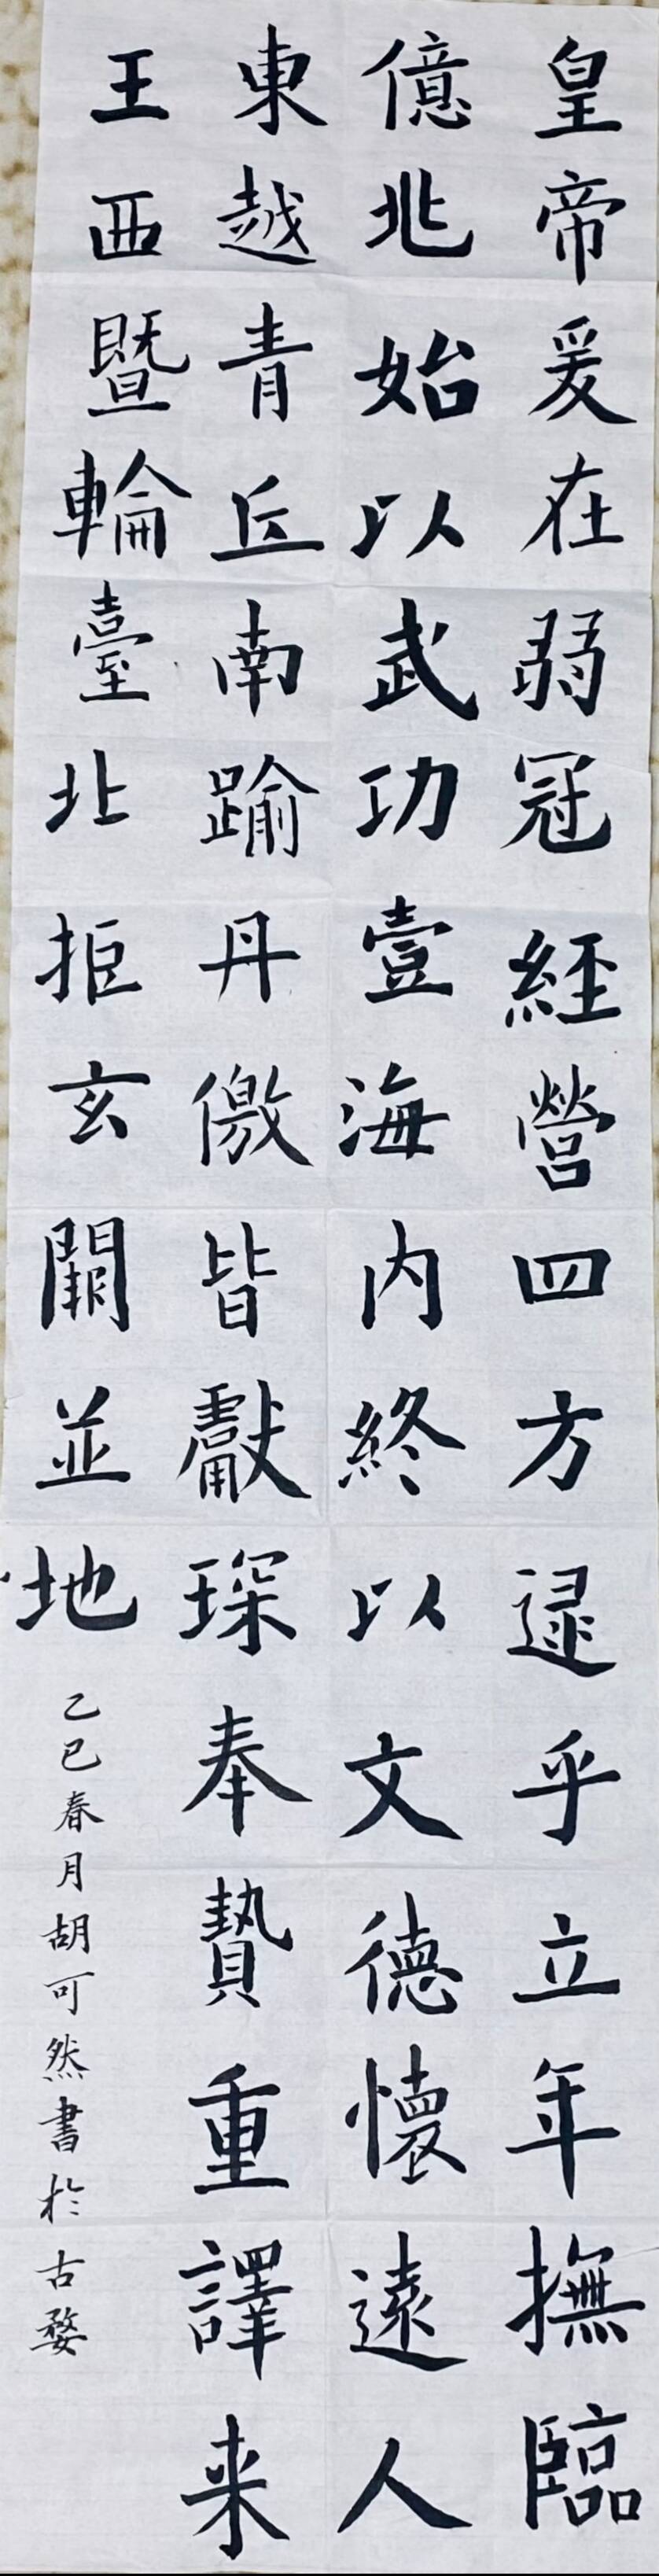 皇帝爰在弱冠經營四方逯乎立年撫臨
億兆始以武功壹海內終以文德懷遠人
東越青丘南踰丹儌皆獻琛奉贄重譯来
王西暨輪臺北拒玄闕並地
乙巳春月胡可然書於古婺